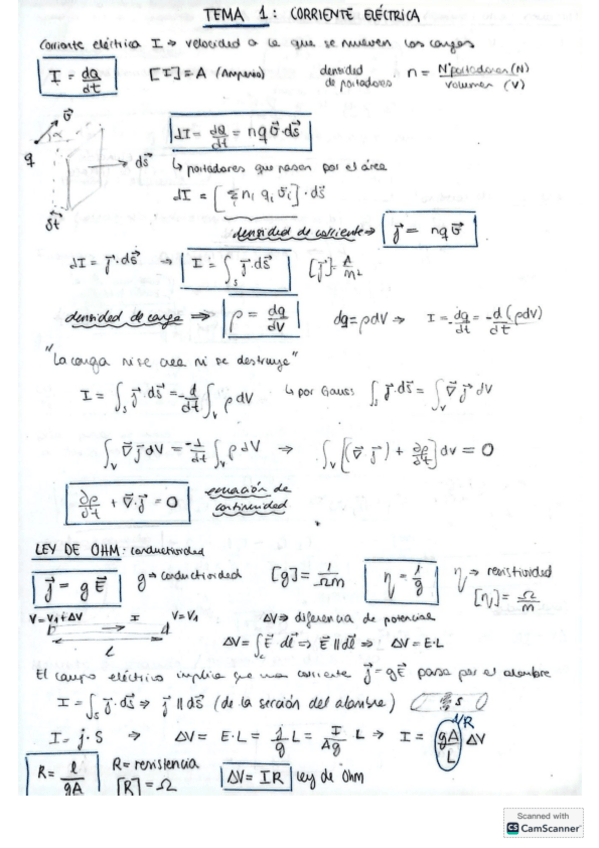 TEMA 1: CORRIENTE ELÉCTRICA
Corriente eléctrica I → velocidad a la que se mueven las cargas
I = dq/dt [I] = A (Amperio) densidad de portadores n = Nºportadores (N)/volumen (V)
v⃗
q
ds⃗
δt⃗
dI = dq/dt = nqv⃗·ds⃗
↳ portadores que pasan por el área
dI = [Σ nᵢ qᵢ v⃗ᵢ]·ds⃗
densidad de corriente → j⃗ = nqv⃗
dI = j⃗·ds⃗ → I = ∫ₛ j⃗·ds⃗ [j⃗] = A/m²
densidad de carga ⇒ ρ = dq/dV dq = ρdV → I = -dq/dt = -d(ρdV)/dt
"La carga ni se crea ni se destruye"
I = ∫ₛ j⃗·ds⃗ = -d/dt ∫ᵥ ρdV ↳ por Gauss ∫ₛ j⃗·ds⃗ = ∫ᵥ ∇⃗j⃗ dV
∫ᵥ ∇⃗j⃗dV = -d/dt ∫ᵥ ρdV → ∫ᵥ [(∇⃗ j⃗) + ∂ρ/∂t] dv = 0
∂ρ/∂t + ∇⃗·j⃗ = 0 ecuación de continuidad
LEY DE OHM: conductividad
j⃗ = gE⃗ g → conductividad [g] = 1/Ωm η = 1/g η → resistividad
[η] = Ω/m
V=V₁+ΔV I V=V₁ ΔV → diferencia de potencial
L ΔV = ∫ E⃗ dl⃗ ⇒ E⃗ ∥ dl⃗ ⇒ ΔV = E·L
El campo eléctrico implica que una corriente j⃗ = gE⃗ pasa por el alambre
I = ∫ₛ j⃗·ds⃗ ⇒ j⃗ ∥ ds⃗ (de la sección del alambre) S
I = j·S → ΔV = E·L = j/g L = I/Ag L → I = gA/L ΔV 1/R
R = l/gA R = resistencia ΔV = IR Ley de Ohm
[R] = Ω
Scanned with
CS CamScanner